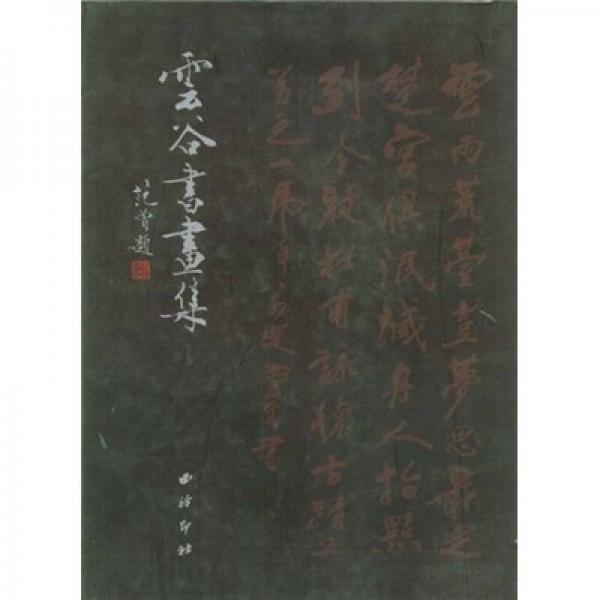 雲雨荒臺豈夢思最是
楚宮俱泯滅舟人指點
到今疑杜甫詠懷古蹟五
首之一
雲谷書畫集
范曾題
西泠印社